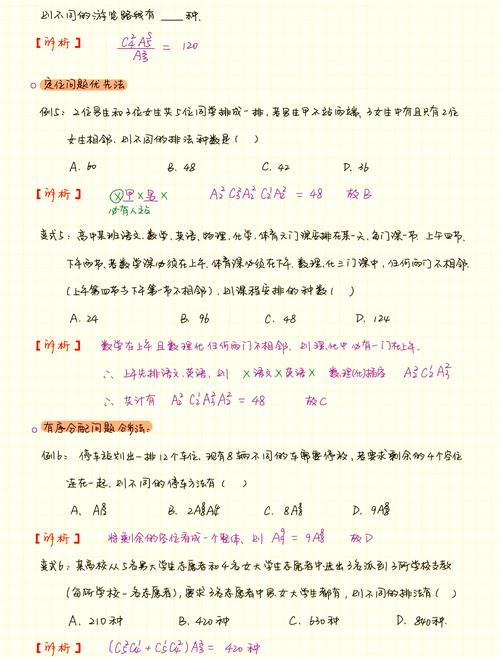 则不同的游览路线有 ___ 种.
【解析】 C₄²A₅⁵ / A₃³ = 120
○ 定位问题优先法
例5: 2位男生和3位女生共5位同学排成一排, 若男生甲不站两端, 3女生中有且只有2位
女生相邻, 则不同的排法种数是( )
A. 60 B. 48 C. 42 D. 36
【解析】 ⓧ甲×男× A₂²C₃²A₂²C₂¹A₂² = 48 故B
必有人站
变式5: 高中某班语文、数学、英语、物理、化学、体育六门课安排在某一天, 每门课一节. 上午四节,
下午两节, 若数学课必须在上午, 体育课必须在下午, 数、理、化三门课中, 任何两门不相邻.
(上午第四节与下午第一节不相邻), 则课程安排的种数( )
A. 24 B. 96 C. 48 D. 124
【解析】 数学在上午且数理化任何两门不相邻. 则理、化中必有一门在上午.
∴ 上午先排语文、英语, 则 ×语文×英语× 数理(化)插序 A₂²C₂¹A₃²
∴ 共计有 A₂²C₂¹A₃²A₂² = 48 故C
○ 有序分配问题分步法:
例6: 停车站划出一排12个车位, 现有8辆不同的车需要停放, 若要求剩余的4个空位
连在一起, 则不同的停车方法有( )
A. A₈⁸ B. 2A₈⁸A₄⁴ C. 8A₈⁸ D. 9A₈⁸
【解析】 将剩余的空位看成一个整体, 则 A₉⁹ = 9A₈⁸ 故D
变式6: 某高校从5名男大学生志愿者和4名女大学生志愿者中选出3名派到3所学校支教
(每所学校一名志愿者), 要求3名志愿者中男女大学生都有, 则不同的排法有( )
A. 210种 B. 420种 C. 630种 D. 840种.
【解析】 (C₅²C₄¹ + C₅¹C₄²)A₃³ = 420 种